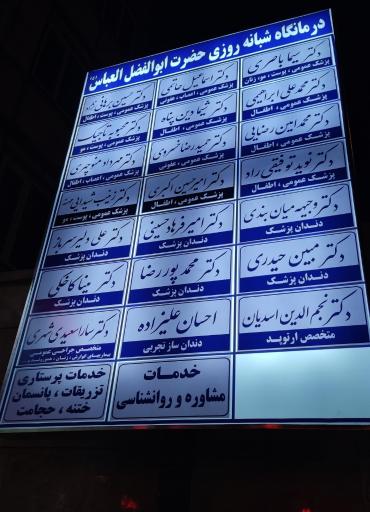 درمانگاه شبانه روزی حضرت ابوالفضل العباس (ع)
دکتر سیما باصری
پزشک عمومی ، پوست ، مو، زنان
دکتر اسماعیل حاتمی
پزشک عمومی ، اعصاب ، عفونی
دکتر حسین برهانی نژاد
پزشک عمومی ، پوست ، اطفال
دکتر محمدعلی ابراهیمی
پزشک عمومی ، اطفال
دکتر شیما دین پناه
پزشک عمومی ، اطفال
دکتر محبوبه تاجیک
پزشک عمومی ، پوست ، مو
دکتر محمدامین رضایی
پزشک عمومی ، اطفال
دکتر حمیدرضا خسروی
پزشک عمومی ، عفونی
دکتر مهرداد منوچهری
پزشک عمومی ، اعصاب ، اطفال
دکتر نوید توفیقی راد
پزشک عمومی ، اطفال
دکتر امیرحسین اکبری
پزشک عمومی ، اطفال
دکتر
پزشک عمومی ، پوست ، مو
دکتر وجیهه میان بندی
دندان پزشک
دکتر امیر فرهاد حسینی
دندان پزشک
دکتر علی دلیر سرباز
دندان پزشک
دکتر مبین حیدری
دندان پزشک
دکتر محمد پوررضا
دندان پزشک
دکتر مینا کاخکی
دندان پزشک
دکتر نجم الدین اسدیان
متخصص ارتوپد
احسان علیزاده
دندان ساز تجربی
دکتر سارا سعیدی
متخصص جراحی عمومی
خدمات
مشاوره و روانشناسی
خدمات پرستاری
تزریقات ، پانسمان
ختنه ، حجامت